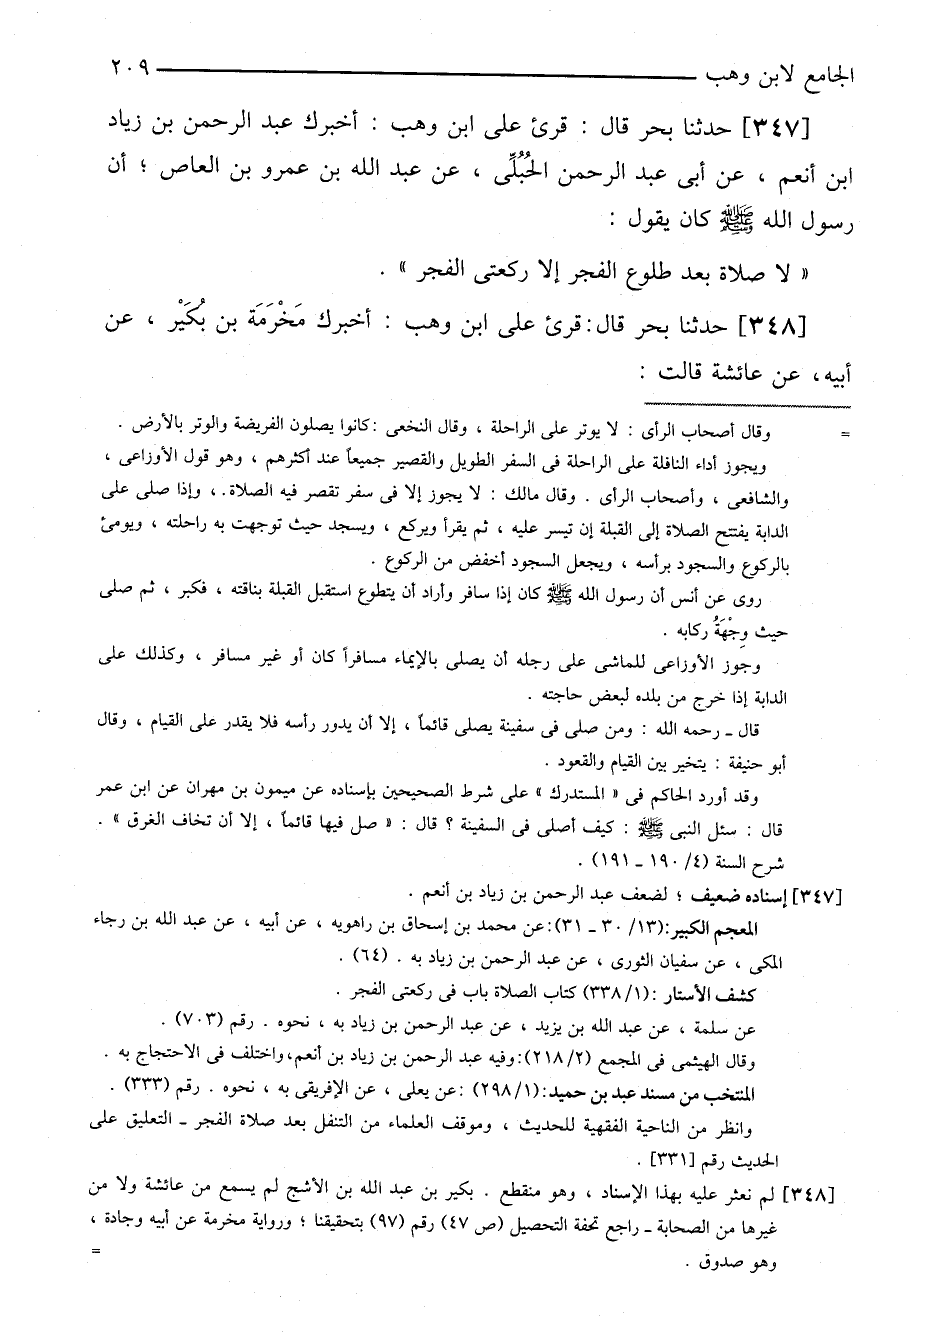 الجامع لابن وهب ـــــــــ ٢٠٩
[٣٤٧] حدثنا بحر قال : قرئ على ابن وهب : أخبرك عبد الرحمن بن زياد
ابن أنعم ، عن أبى عبد الرحمن الحُبُلِّى ، عن عبد الله بن عمرو بن العاص ؛ أن
رسول الله ﷺ كان يقول :
« لا صلاة بعد طلوع الفجر إلا ركعتى الفجر » .
[٣٤٨] حدثنا بحر قال : قرئ على ابن وهب : أخبرك مَخْرَمَة بن بُكَيْر ، عن
أبيه، عن عائشة قالت :
= وقال أصحاب الرأى : لا يوتر على الراحلة ، وقال النخعى : كانوا يصلون الفريضة والوتر بالأرض .
ويجوز أداء النافلة على الراحلة فى السفر الطويل والقصير جميعاً عند أكثرهم ، وهو قول الأوزاعى ،
والشافعى ، وأصحاب الرأى . وقال مالك : لا يجوز إلا فى سفر تقصر فيه الصلاة ، وإذا صلى على
الدابة يفتتح الصلاة إلى القبلة إن تيسر عليه ، ثم يقرأ ويركع ، ويسجد حيث توجهت به راحلته ، ويومئ
بالركوع والسجود برأسه ، ويجعل السجود أخفض من الركوع .
روى عن أنس أن رسول الله ﷺ كان إذا سافر وأراد أن يتطوع استقبل القبلة بناقته ، فكبر ، ثم صلى
حيث وِجْهَةُ ركابه .
وجوز الأوزاعى للماشى على رجله أن يصلى بالإيماء مسافراً كان أو غير مسافر ، وكذلك على
الدابة إذا خرج من بلده لبعض حاجته .
قال ـ رحمه الله : ومن صلى فى سفينة يصلى قائماً ، إلا أن يدور رأسه فلا يقدر على القيام ، وقال
أبو حنيفة : يتخير بين القيام والقعود .
وقد أورد الحاكم فى « المستدرك » على شرط الصحيحين بإسناده عن ميمون بن مهران عن ابن عمر
قال : سئل النبى ﷺ : كيف أصلى فى السفينة ؟ قال : « صل فيها قائماً ، إلا أن تخاف الغرق » .
شرح السنة (٤/ ١٩٠ ـ ١٩١) .
[٣٤٧] إسناده ضعيف ؛ لضعف عبد الرحمن بن زياد بن أنعم .
المعجم الكبير:(١٣/ ٣٠ ـ ٣١):عن محمد بن إسحاق بن راهويه ، عن أبيه ، عن عبد الله بن رجاء
المكى ، عن سفيان الثورى ، عن عبد الرحمن بن زياد به . (٦٤) .
كشف الأستار :(١/ ٣٣٨) كتاب الصلاة باب فى ركعتى الفجر .
عن سلمة ، عن عبد الله بن يزيد ، عن عبد الرحمن بن زياد به ، نحوه . رقم (٧٠٣) .
وقال الهيثمى فى المجمع (٢/ ٢١٨):وفيه عبد الرحمن بن زياد بن أنعم،واختلف فى الاحتجاج به .
المنتخب من مسند عبد بن حميد:(١/ ٢٩٨) :عن يعلى ، عن الإفريقى به ، نحوه . رقم (٣٣٣) .
وانظر من الناحية الفقهية للحديث ، وموقف العلماء من التنفل بعد صلاة الفجر ـ التعليق على
الحديث رقم [٣٣١] .
[٣٤٨] لم نعثر عليه بهذا الإسناد ، وهو منقطع . بكير بن عبد الله بن الأشج لم يسمع من عائشة ولا من
غيرها من الصحابة ـ راجع تحفة التحصيل (ص ٤٧) رقم (٩٧) بتحقيقنا ؛ ورواية مخرمة عن أبيه وجادة ،
وهو صدوق . =